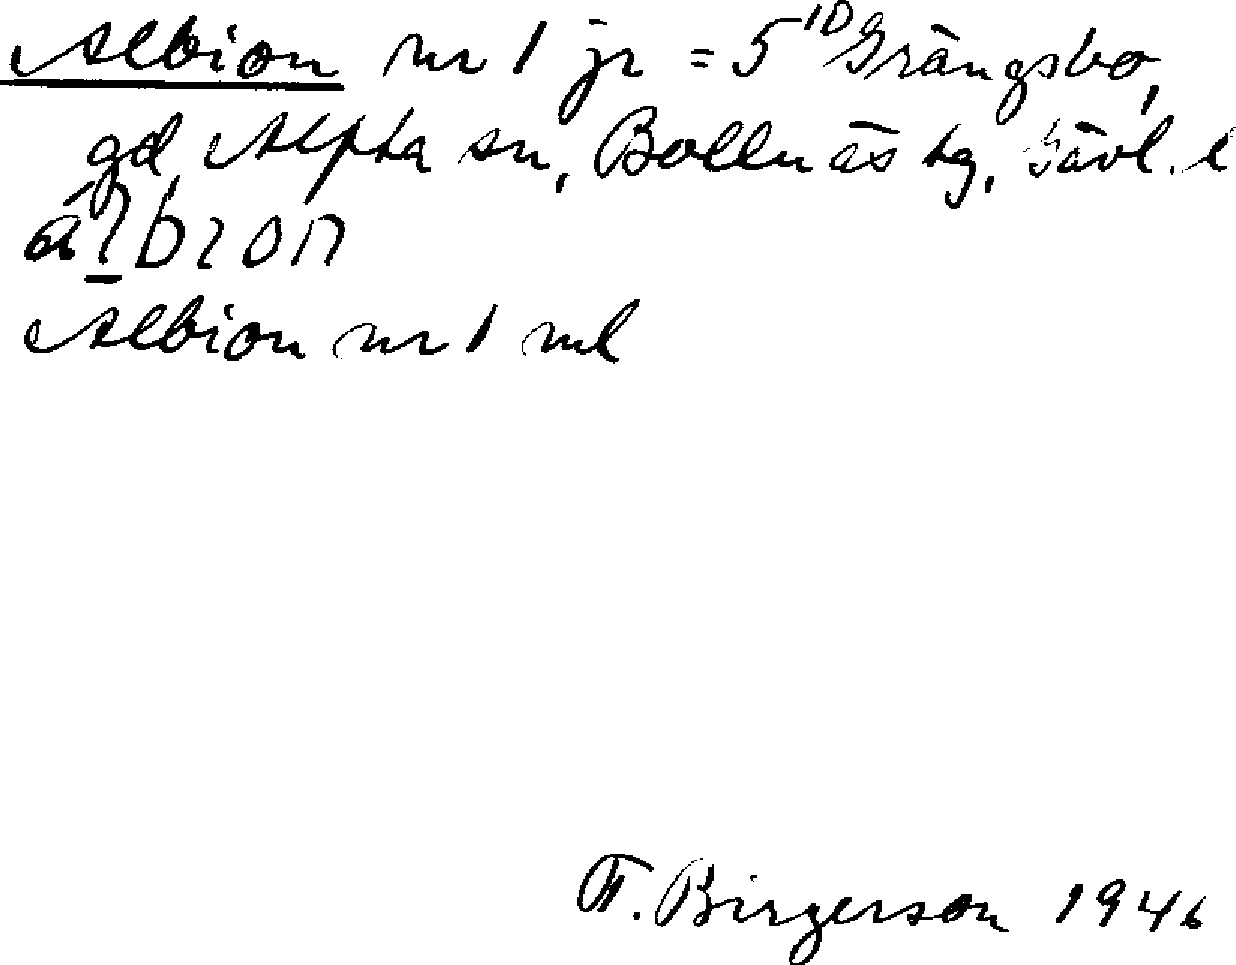 Albion nr 1 jr = 5¹ᴰ Grängsbo,
gd, Alfta sn, Bollnäs tg, Gävl. l
Albion nr 1 ml
T. Birgerson 1946